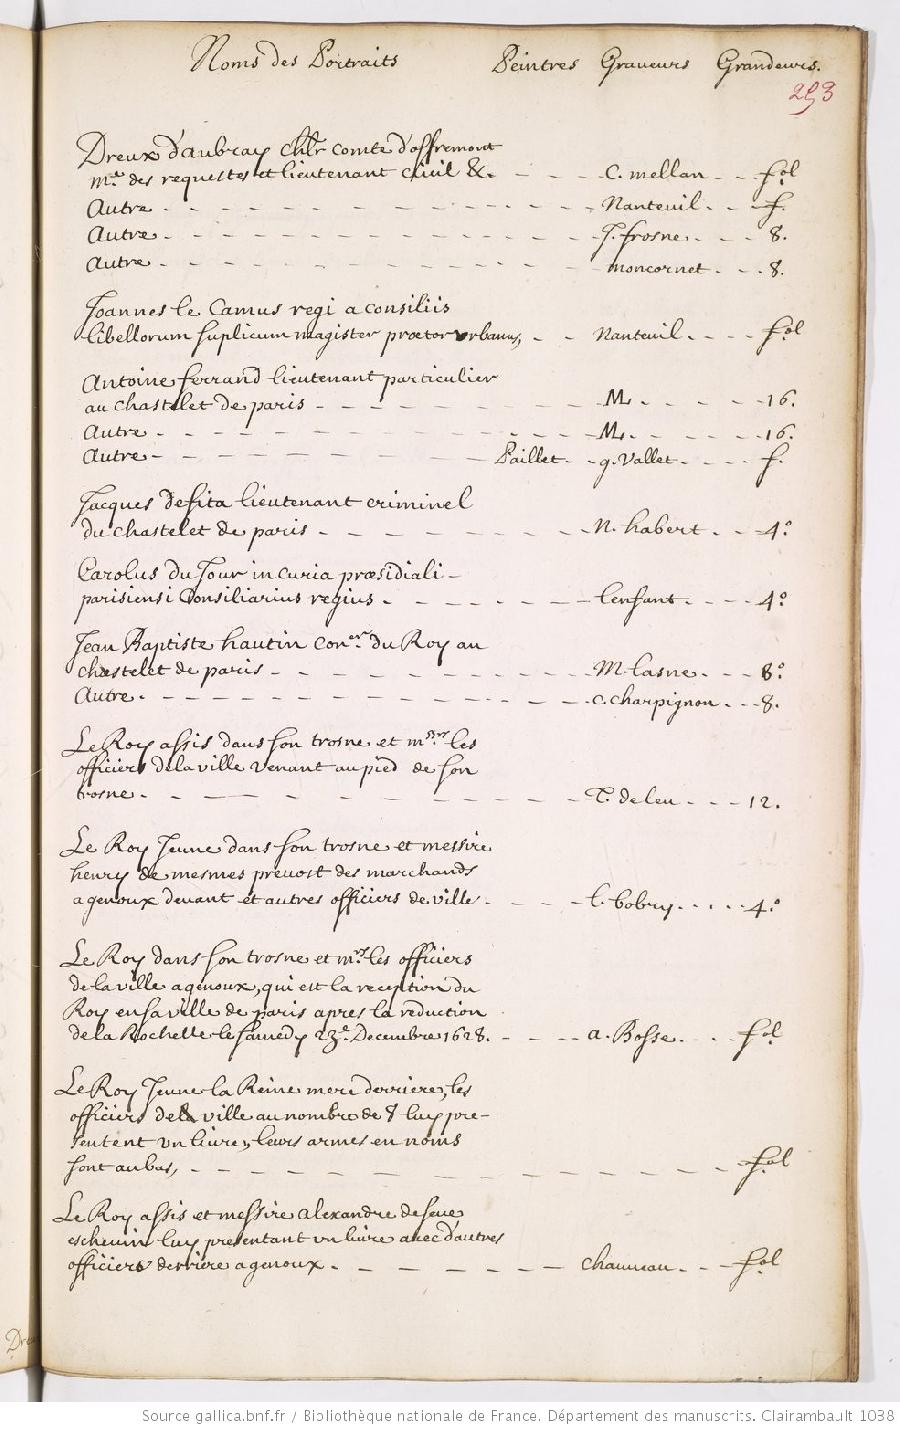 Noms des Portraits Peintres Graveurs Grandeurs.
253
Dreux d'aubray chlr comte d'offremont
mre des requestes et lieutenant civil &c. - - - c. mellan - - fol
Autre - - - Nanteuil - - f.
Autre - - - J. frosne - - 8.
Autre - - - moncornet - - 8.
Joannes le Camus regi a consiliis
libellorum suplicum magister praetor urbanus, - - Nanteuil - - fol
Antoine ferrand lieutenant particulier
au chastelet de paris - - - M. - - 16.
Autre - - - M. - - 16.
Autre - - - Paillet - - g. Vallet - - f.
Jacques defita lieutenant criminel
du chastelet de paris - - - N. habert - - 4º
Carolus du Jour in curia praesidiali
parisiensi Consiliarius regius - - - lenfant - - 4º
Jean Baptiste hautin coner du Roy au
chastelet de paris - - - M. lasne - - 8º
Autre - - - c. charpignon - - 8.
Le Roy assis dans son trosne et mssrs les
officiers de la ville venant au pied de son
trosne - - - T. de leu - - 12.
Le Roy Jeune dans son trosne et messire
henry de mesmes prevost des marchands
a genoux devant et autres officiers de ville - - - l. bobry - - 4º
Le Roy dans son trosne et mrs les officiers
de la ville a genoux, qui est la reception du
Roy en sa ville de paris apres la reduction
de la Rochelle le samedy 23e Decembre 1628. - - - a. Bosse - - fol
Le Roy Jeune la Reine mere derriere, les
officiers de la ville au nombre de 8 luy pre-
sentent un livre, leurs armes en noms
sont au bas, - - - fol
Le Roy assis et messire alexandre de seve
eschevin luy presentant un livre avec d'autres
officiers derriere a genoux - - - chauveau - - fol
Source gallica.bnf.fr / Bibliothèque nationale de France. Département des manuscrits. Clairambault 1038